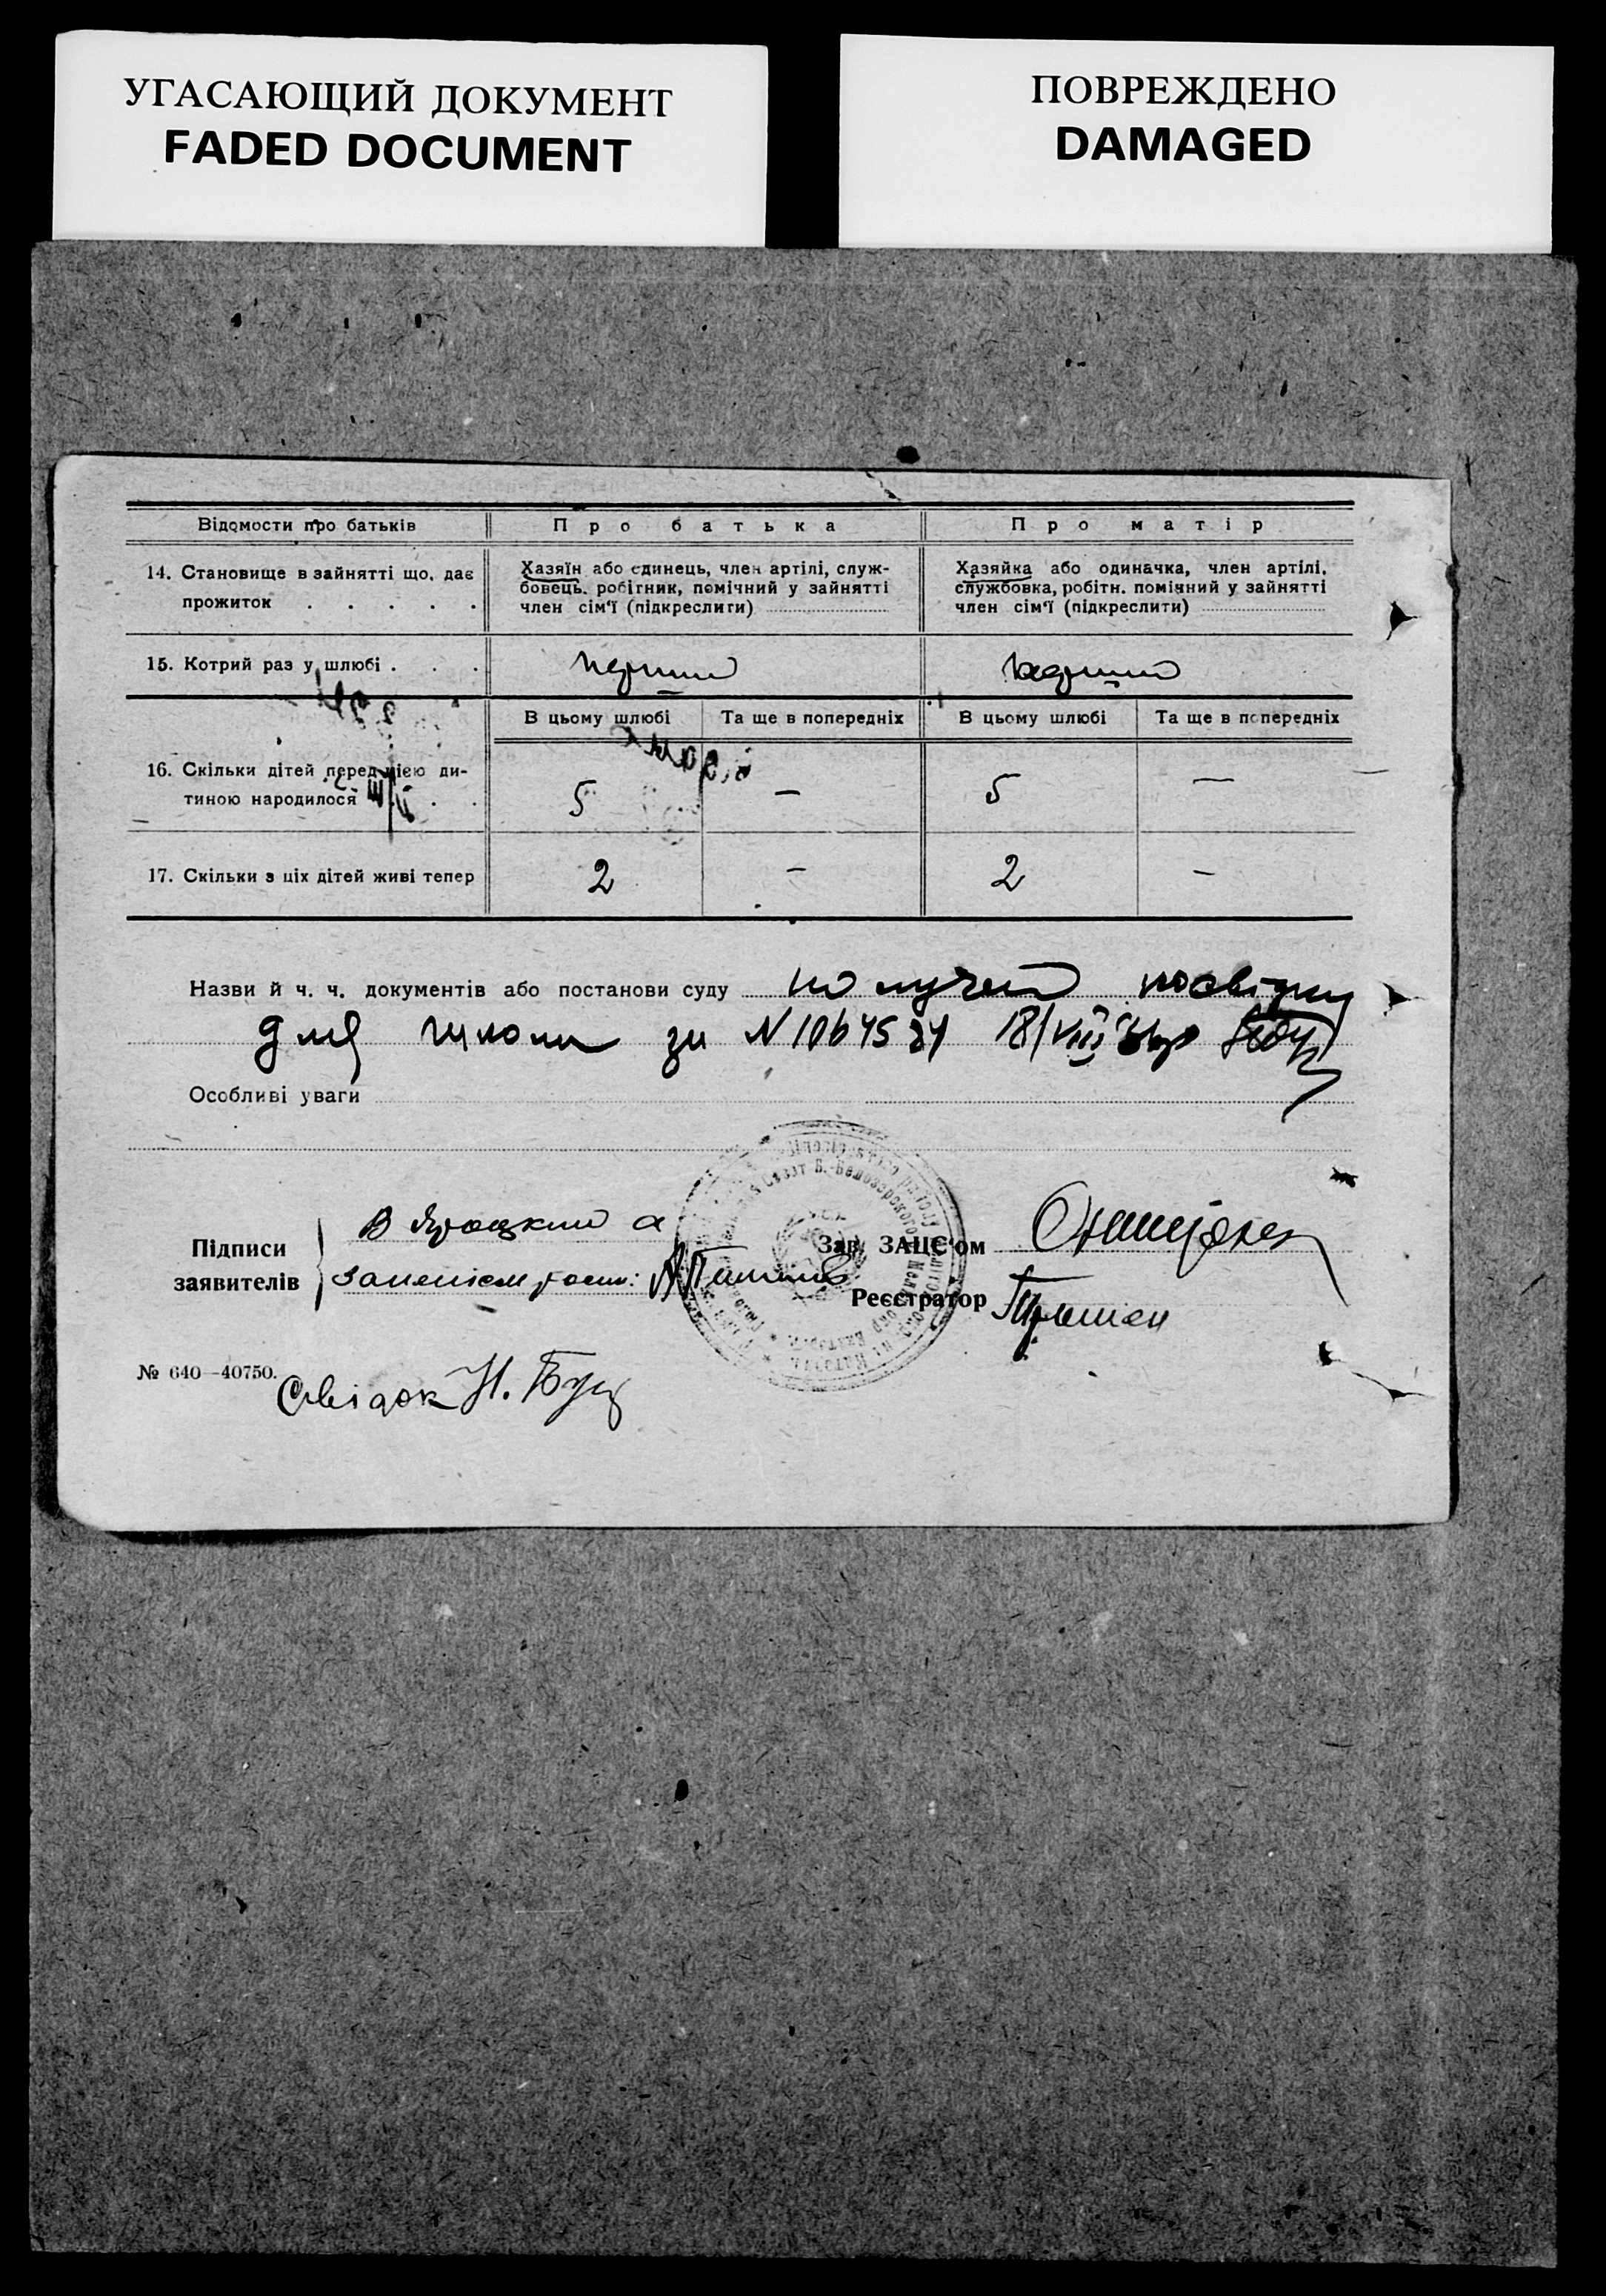 УГАСАЮЩИЙ ДОКУМЕНТ
FADED DOCUMENT
ПОВРЕЖДЕНО
DAMAGED
Відомости про батьків
Про батька
Про матір
14. Становище в зайнятті що, дає
прожиток . . . . .
Хазяїн або єдинець, член артілі, служ-
бовець, робітник, помічний у зайнятті
член сім'ї (підкреслити)
Хазяйка або одиначка, член артілі,
службовка, робітн. помічний у зайнятті
член сім'ї (підкреслити)
15. Котрий раз у шлюбі . . .
перший
перший
В цьому шлюбі
Та ще в попередніх
В цьому шлюбі
Та ще в попередніх
16. Скільки дітей перед цією ди-
тиною народилося . .
5
—
5
—
17. Скільки з ціх дітей живі тепер
2
—
2
—
Назви й ч. ч. документів або постанови суду
посвідку
для школи за N 18/VIII
Особливі уваги
Підписи
заявителів
В Яроцкий а
Зав. ЗАЦС'ом
Реєстратор
№ 640—40750.
Свідок Н. Буц